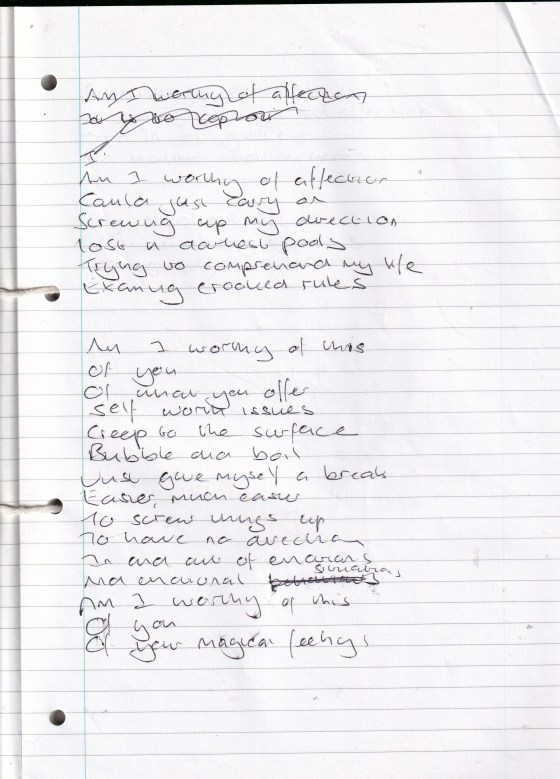 Am I worthy of affection
I
Am I worthy of affection
Could just carry on
Screwing up my direction
Lost in darkest pools
Trying to comprehend my life
crooked rules
Am I worthy of this
Of you
Of what you offer
Self worth issues
Creep to the surface
Bubble and boil
Just give myself a break
Easier, much easier
To screw things up
To have no direction
In and out of emotions
situations
And emotional behaviours
Am I worthy of this
Of you
Of your magical feelings